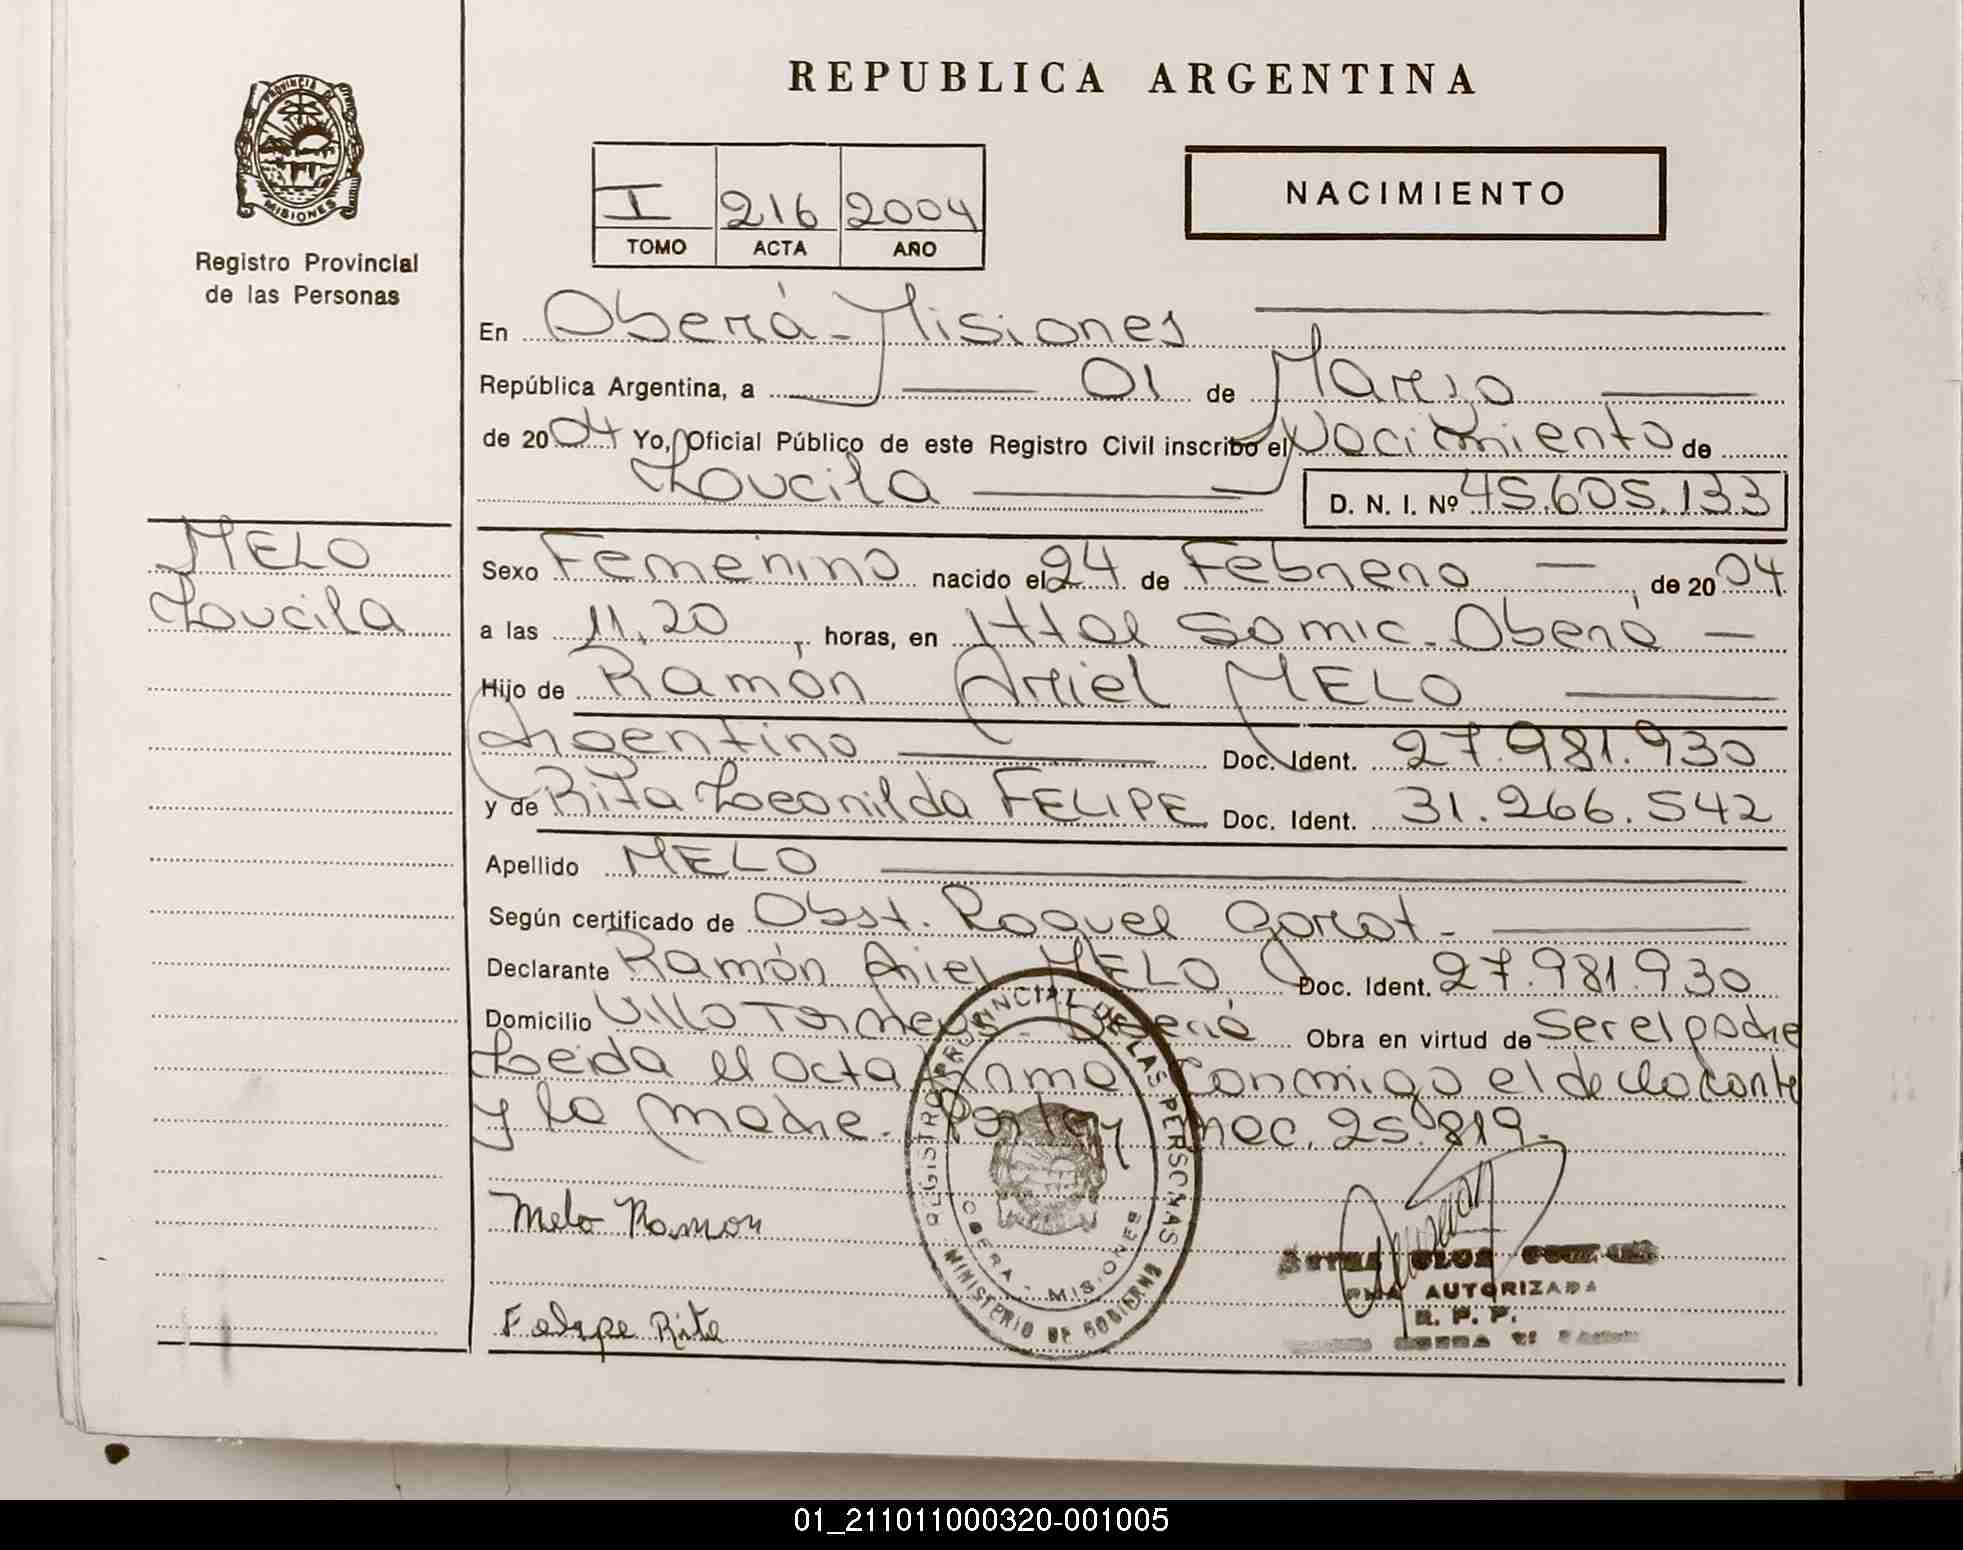 REPUBLICA ARGENTINA
PROVINCIA DE MISIONES
Registro Provincial
de las Personas
I 216 2004
TOMO ACTA AÑO
NACIMIENTO
En Oberá - Misiones
República Argentina, a 01 de Marzo
de 2004 Yo, Oficial Público de este Registro Civil inscribo el Nacimiento de
Loucila
D. N. I. Nº 45.605.133
MELO
Loucila
Sexo Femenino nacido el 24 de Febrero de 2004
a las 11,20 horas, en Httal Samic - Oberá
Hijo de Ramón Ariel MELO
Argentino Doc. Ident. 27.981.930
y de Rita Leonilda FELIPE Doc. Ident. 31.266.542
Apellido MELO
Según certificado de Obst. Raquel Gorat -
Declarante Ramón Ariel MELO Doc. Ident. 27.981.930
Domicilio Villa Oberá Obra en virtud de Ser el padre
Leida el acta firma conmigo el declarante
y la madre. Por Ley nac. 25.819.
REGISTRO PROVINCIAL DE LAS PERSONAS
OBERA - MISIONES
MINISTERIO DE GOBIERNO
Melo Ramon
Felipe Rita
AUTORIZADA
R. P. P.
01_211011000320-001005